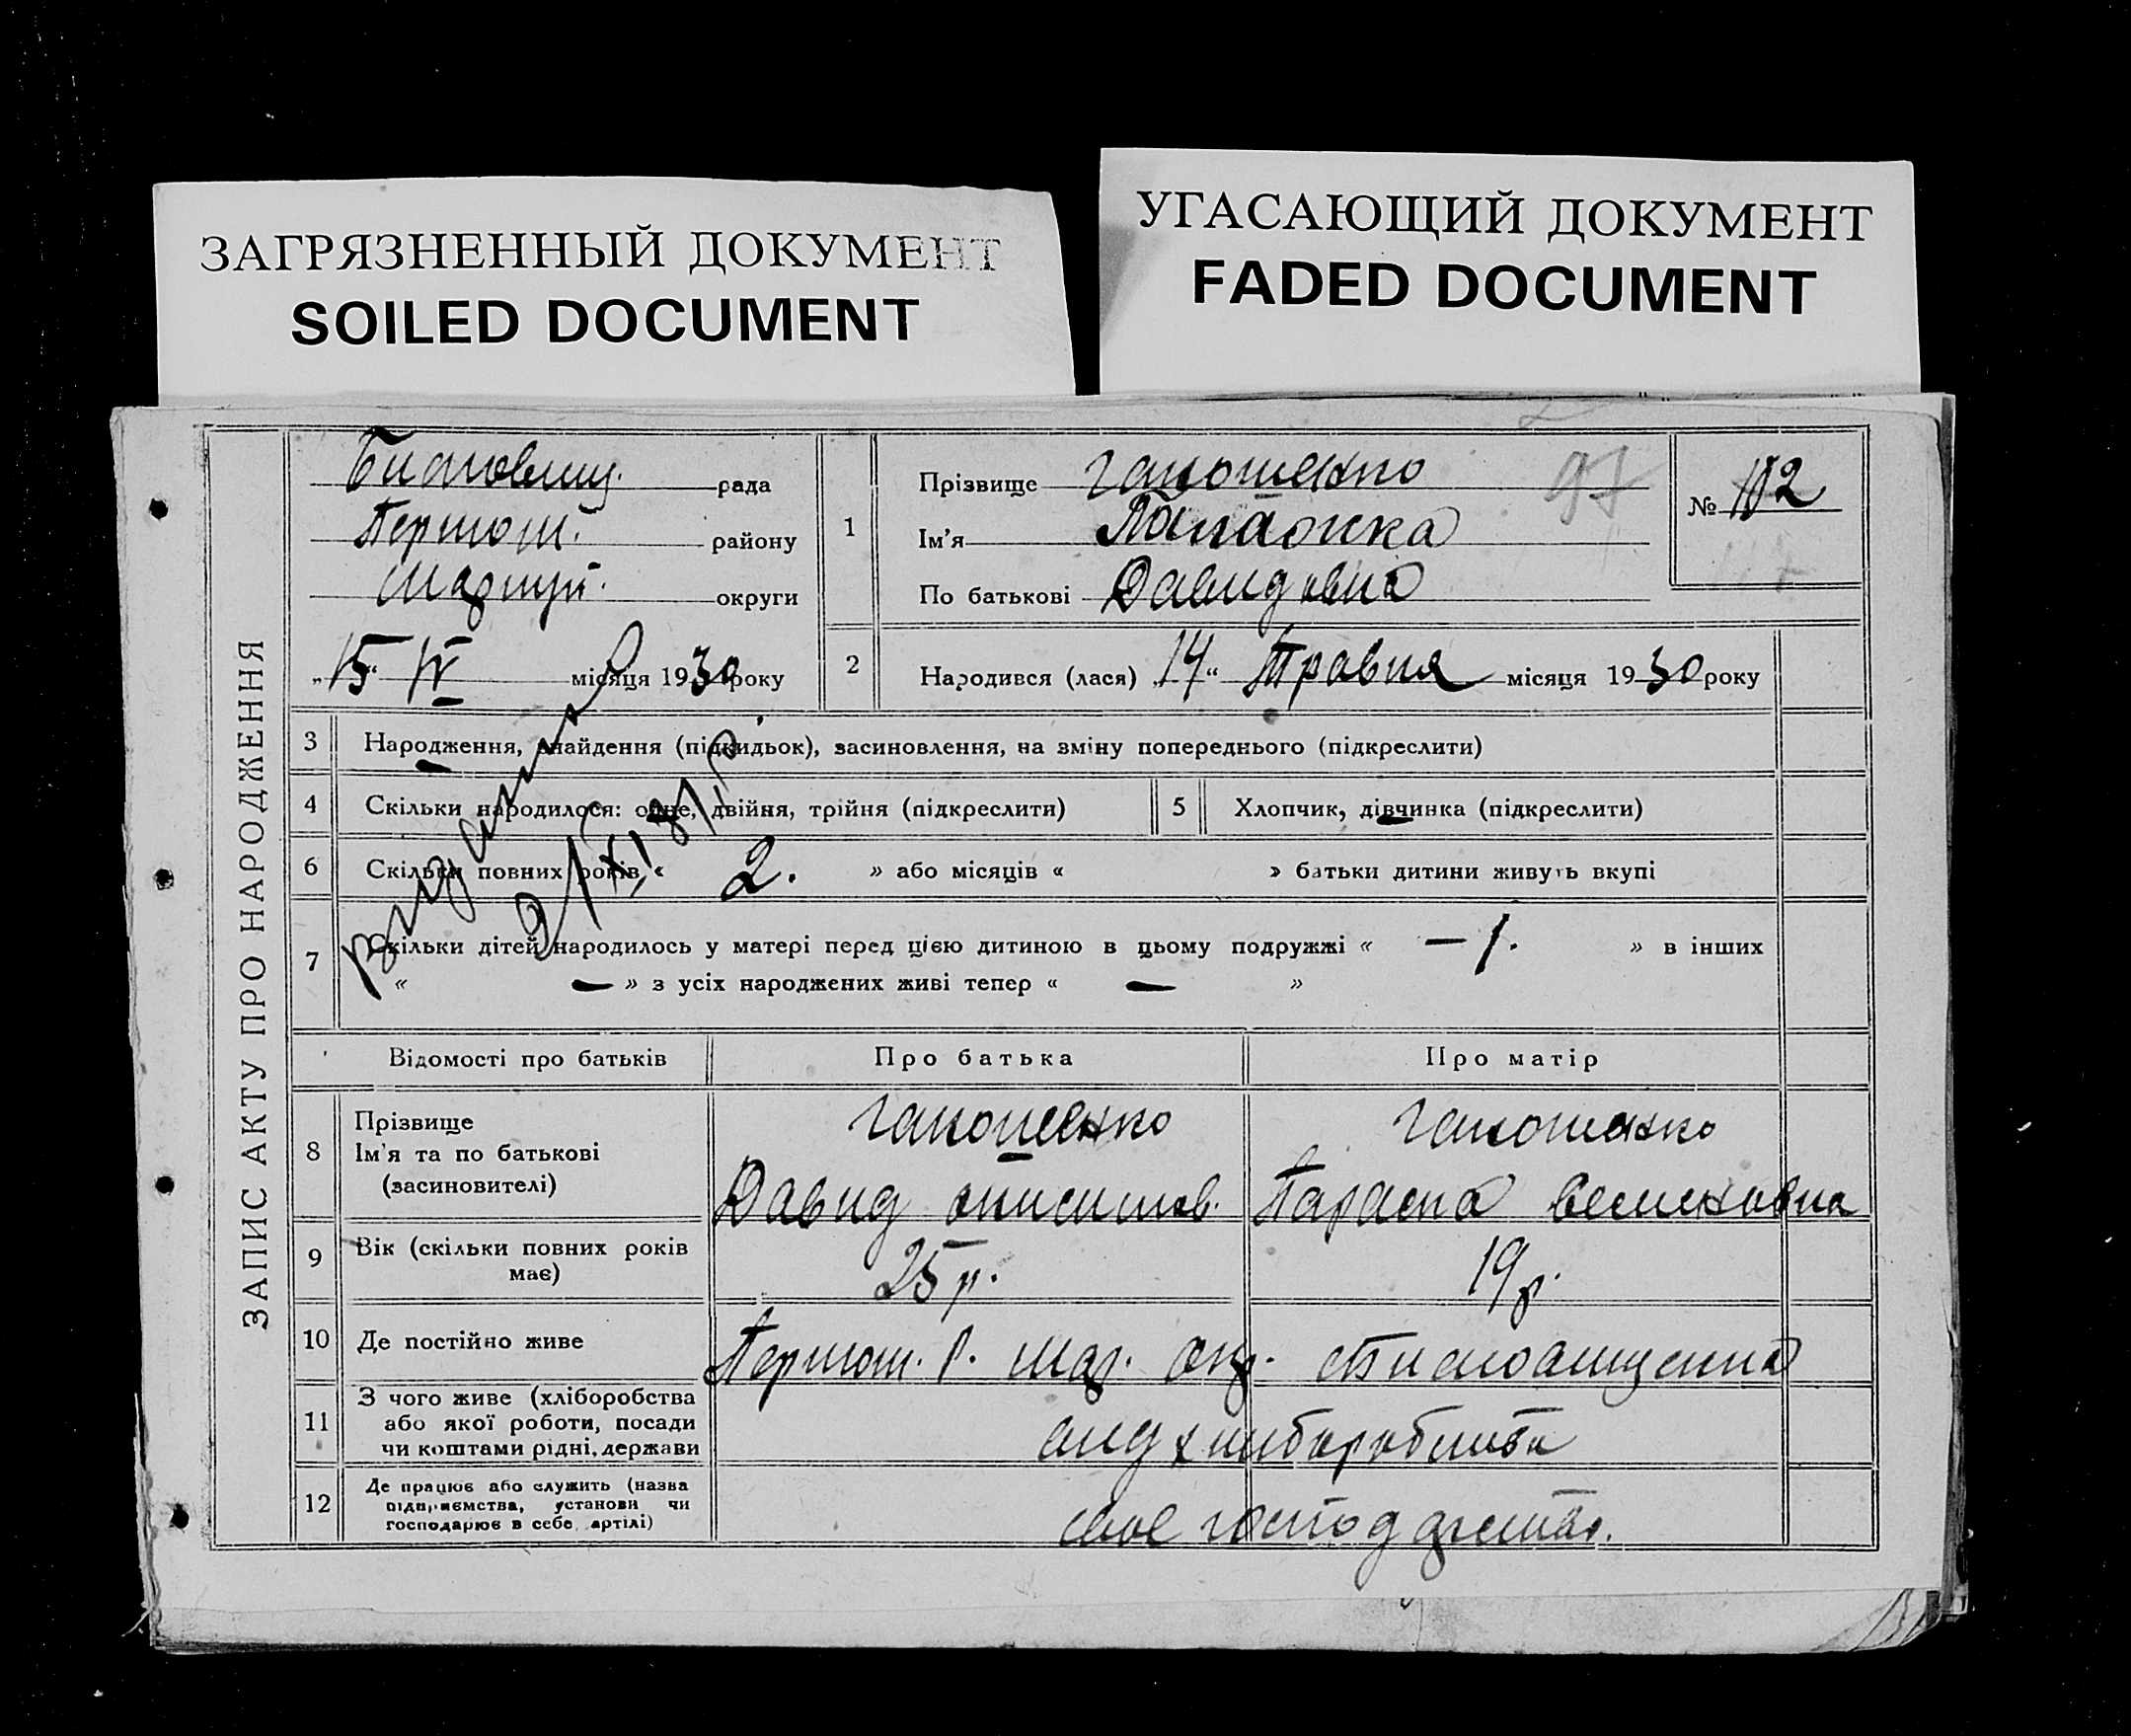 ЗАГРЯЗНЕННЫЙ ДОКУМЕНТ
SOILED DOCUMENT
УГАСАЮЩИЙ ДОКУМЕНТ
FADED DOCUMENT
ЗАПИС АКТУ ПРО НАРОДЖЕННЯ
рада
району
округи
„15“ IV місяця 1930 року
1
Прізвище Гапошенко
Ім'я
По батькові Давидовна
97
№ 102
2
Народився (лася) „14“ Травня місяця 1930 року
3 Народження, знайдення (підкидьок), засиновлення, на зміну попереднього (підкреслити)
4 Скільки народилося: одне, двійня, трійня (підкреслити)
5 Хлопчик, дівчинка (підкреслити)
6 Скільки повних років « 2. » або місяців « » батьки дитини живуть вкупі
7 Скільки дітей народилось у матері перед цією дитиною в цьому подружжі « – 1. » в інших
« — » з усіх народжених живі тепер « — »
Відомості про батьків Про батька Про матір
8 Прізвище Гапошенко Гапошенко
Ім'я та по батькові
(засиновителі) Давид Параска
9 Вік (скільки повних років має) 25 р. 19 р.
10 Де постійно живе Першот. р. Мар. окр.
11 З чого живе (хліборобства
або якої роботи, посади
чи коштами рідні, держави
від хліборобства
12 Де працює або служить (назва
підприємства, установи чи
господарює в себе, артілі)
своє господарство.